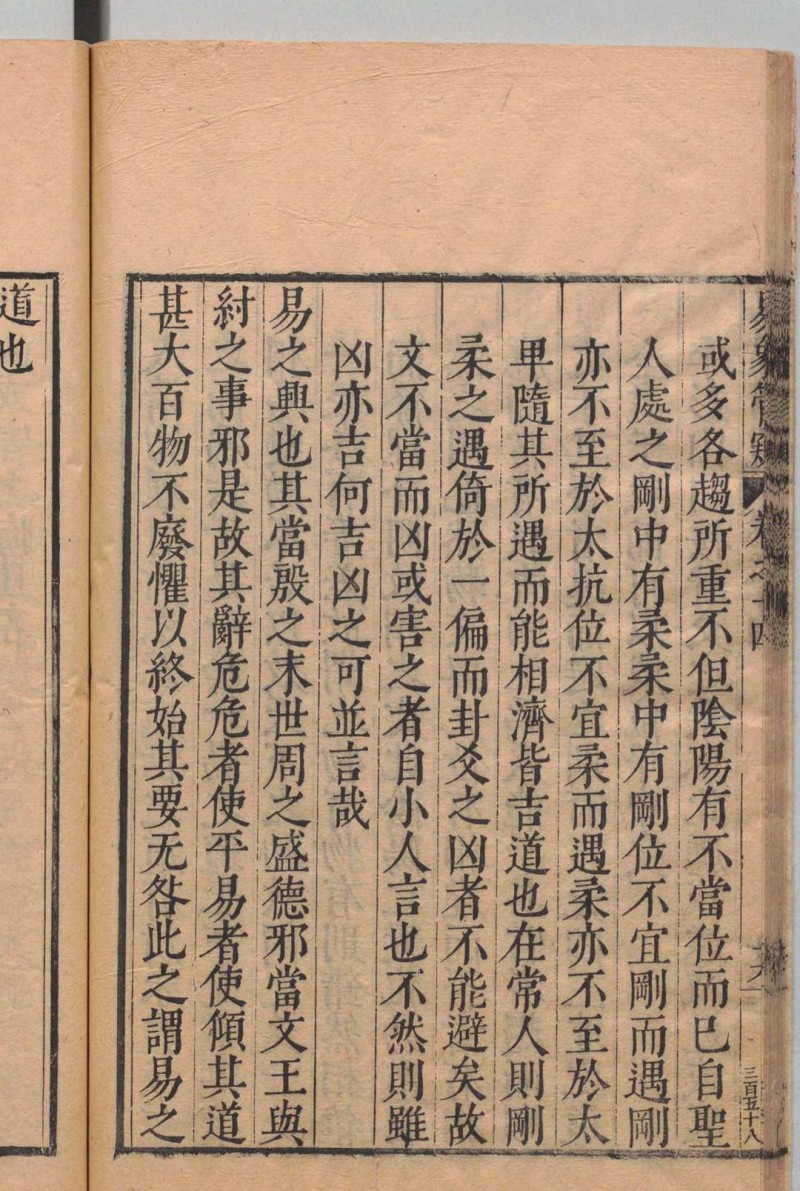 易象管窺 卷之十四 三百五十八
或多各趨所重不但陰陽有不當位而已自聖
人處之剛中有柔柔中有剛位不宜剛而遇剛
亦不至於太抗位不宜柔而遇柔亦不至於太
卑隨其所遇而能相濟皆吉道也在常人則剛
柔之遇倚於一偏而卦爻之凶者不能避矣故
文不當而凶或害之者自小人言也不然則雖
凶亦吉何吉凶之可並言哉
易之興也其當殷之末世周之盛德邪當文王與
紂之事邪是故其辭危危者使平易者使傾其道
甚大百物不廢懼以終始其要无咎此之謂易之
道也